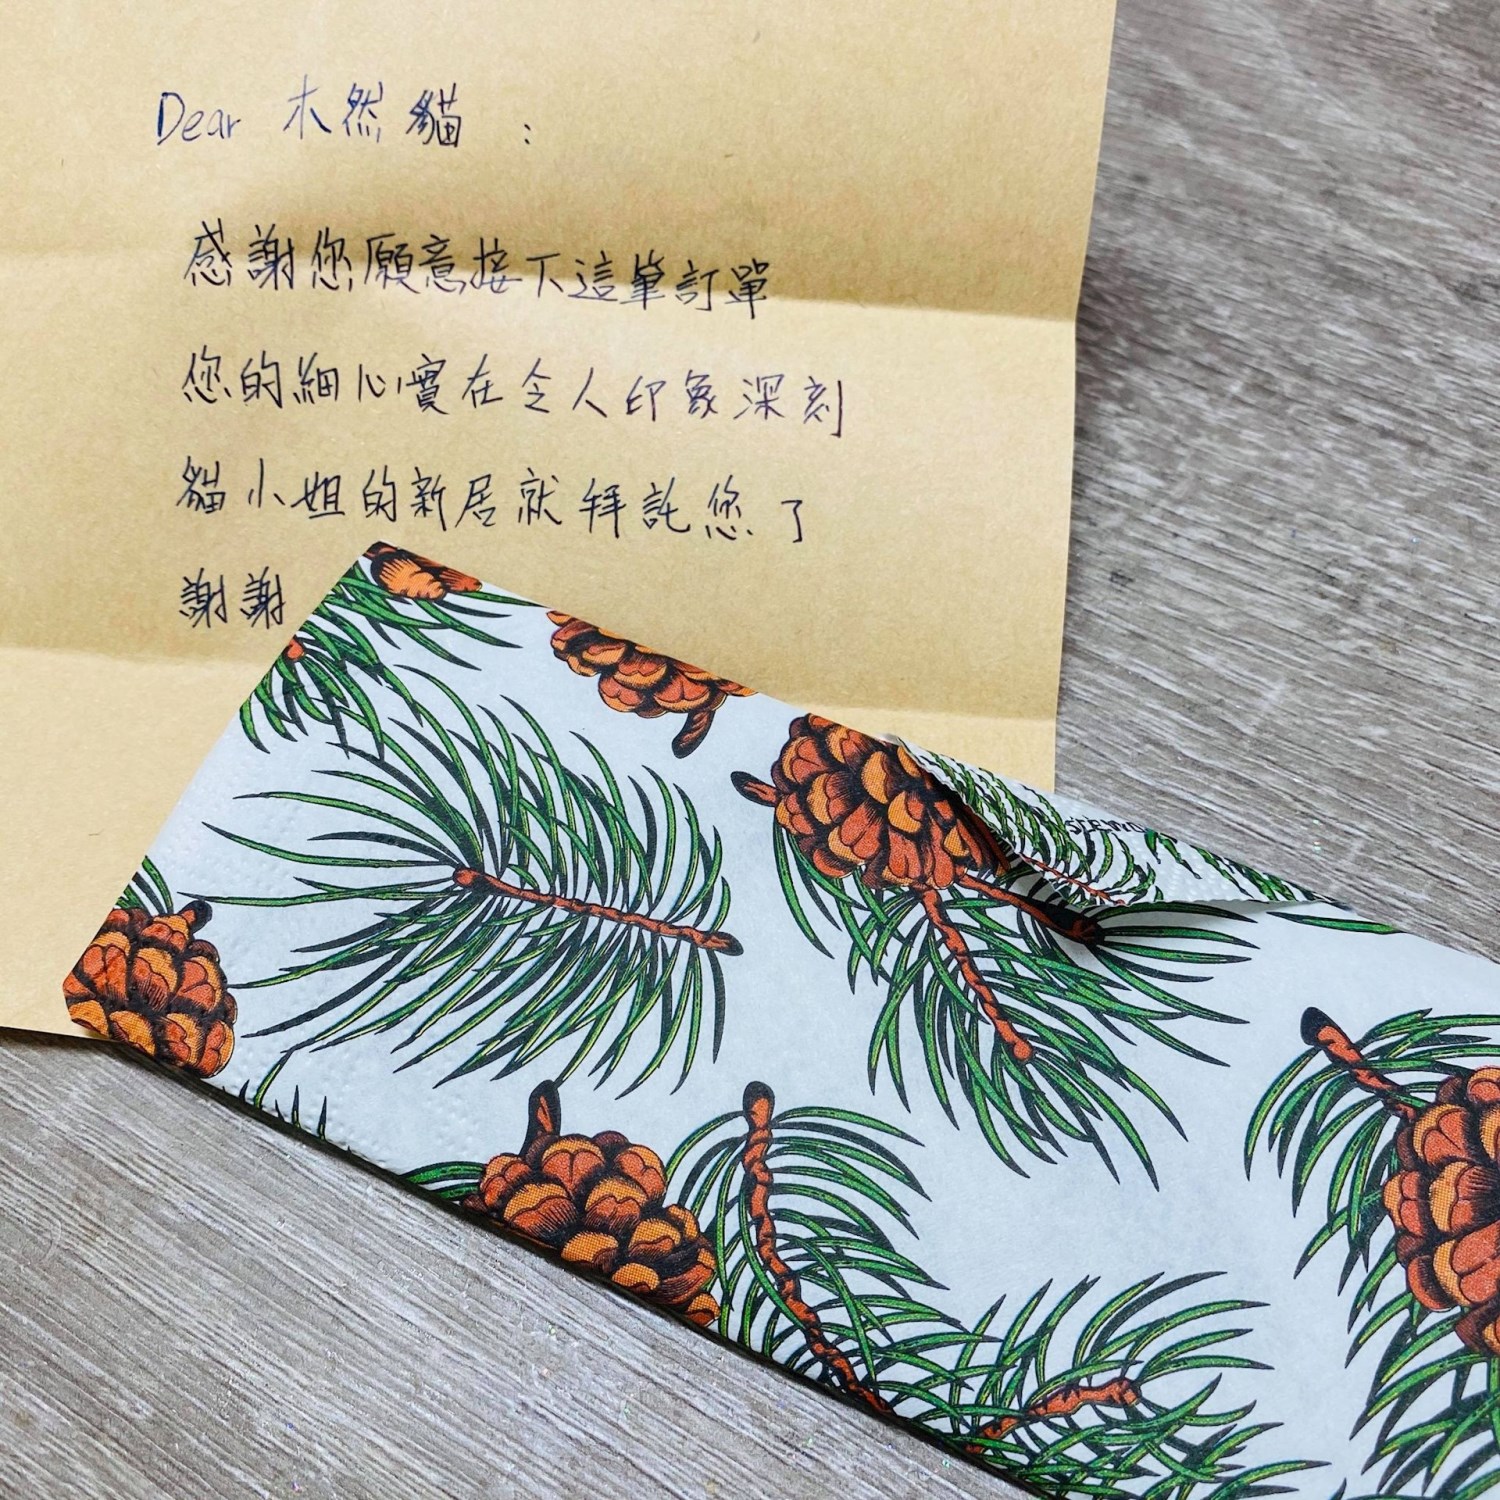 Dear 木然貓：
感謝您願意接下這筆訂單
您的細心實在令人印象深刻
貓小姐的新居就拜託您了
謝謝